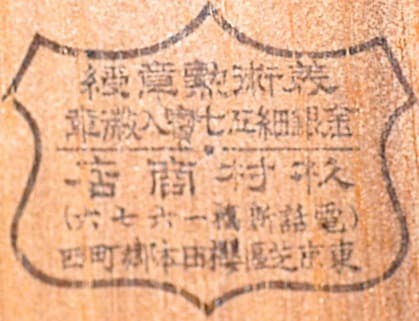 術勲章
金銀細工七寳入徽章
村商店
(電話新橋一六七六)
芝區櫻田本郷町四